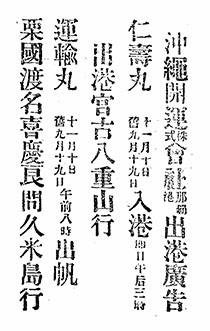 沖繩開運株式會社那覇支店出港廣告
仁壽丸 十一月十日 舊九月十九日 入港 即日午后三時
出港宮古八重山行
運輸丸 十一月十日 舊九月十九日 午前八時 出帆
粟國渡名喜慶良間久米島行